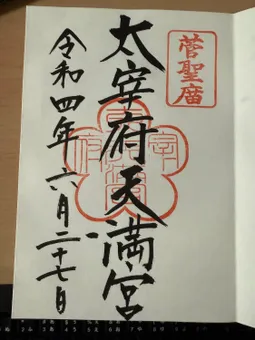 菅聖庿
太宰府天満宮
令和四年六月二十七日